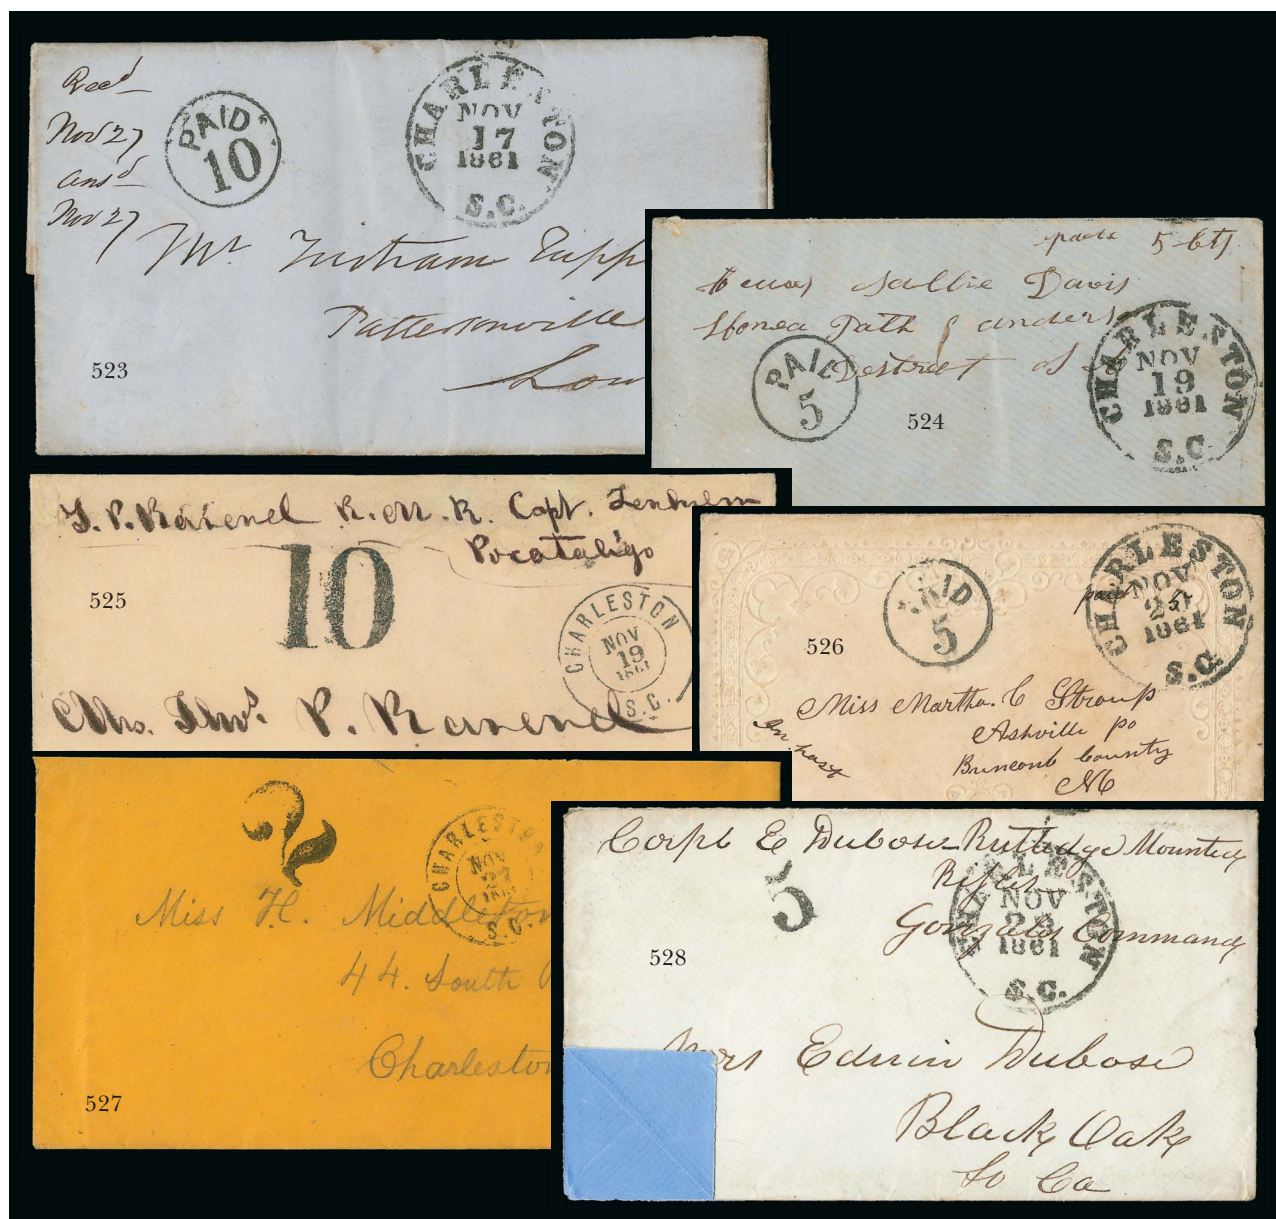 Recd
Nov 27
ansd
Nov 27
PAID
10
CHARLESTON
NOV
17
1861
S.C.
Mr
Pattersonville
523
paid 5 cts
Sallie Davis
Honea Path
District
PAID
5
CHARLESTON
NOV
19
1861
S.C.
524
T. P. Ravenel R. M. R. Capt.
Pocotaligo
10
525
CHARLESTON
NOV
19
1861
S.C.
Mrs. Thos. P. Ravenel
PAID
5
paid
CHARLESTON
NOV
1861
S.C.
526
Miss Martha. C Stroup
Ashville po
Buncomb County
NC
In hast
2
CHARLESTON
NOV
27
1861
S.C.
Miss H. Middleton
44. South
Charleston
527
Corpl E Dubose Rutledge Mounted
Rifles
Gonzales Command
5
CHARLESTON
NOV
1861
S.C.
528
Mrs Edwin Dubose
Black Oak
So Ca